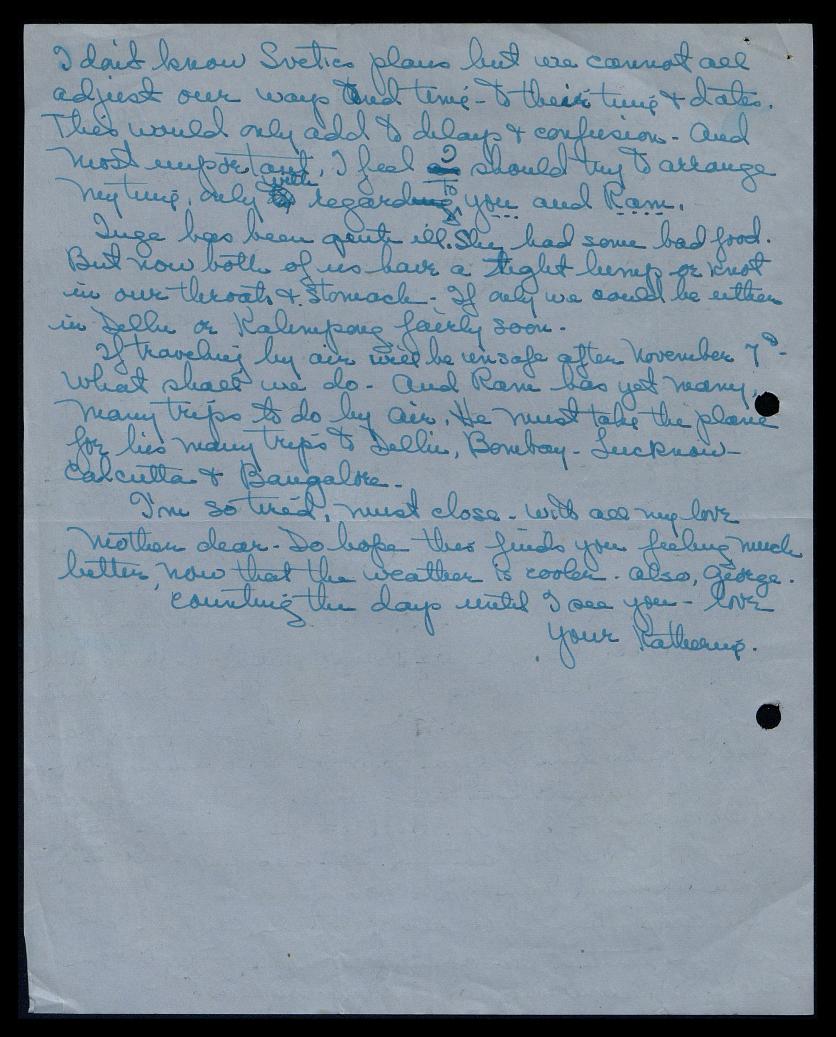 I don't know Svetics plans but we cannot all
adjust our ways and time - to their time & dates.
This would only add to delays & confusion - And
most important, I feel I should try to arrange
my time, only with regarding to you and Ram.
Inge has been quite ill. She had some bad food.
But now both of us have a tight lump or knot
in our throats & stomach - If only we could be either
in Delhi or Kalimpong fairly soon -
If traveling by air will be unsafe after November 7th -
what shall we do - And Ram has yet many,
many trips to do by air. He must take the plane
for his many trips to Delhi, Bombay - Lucknow -
Calcutta & Bangalore -
I'm so tired, must close - with all my love
Mother dear - Do hope this finds you feeling much
better, now that the weather is cooler - also, George.
counting the days until I see you - love
your Katherine.